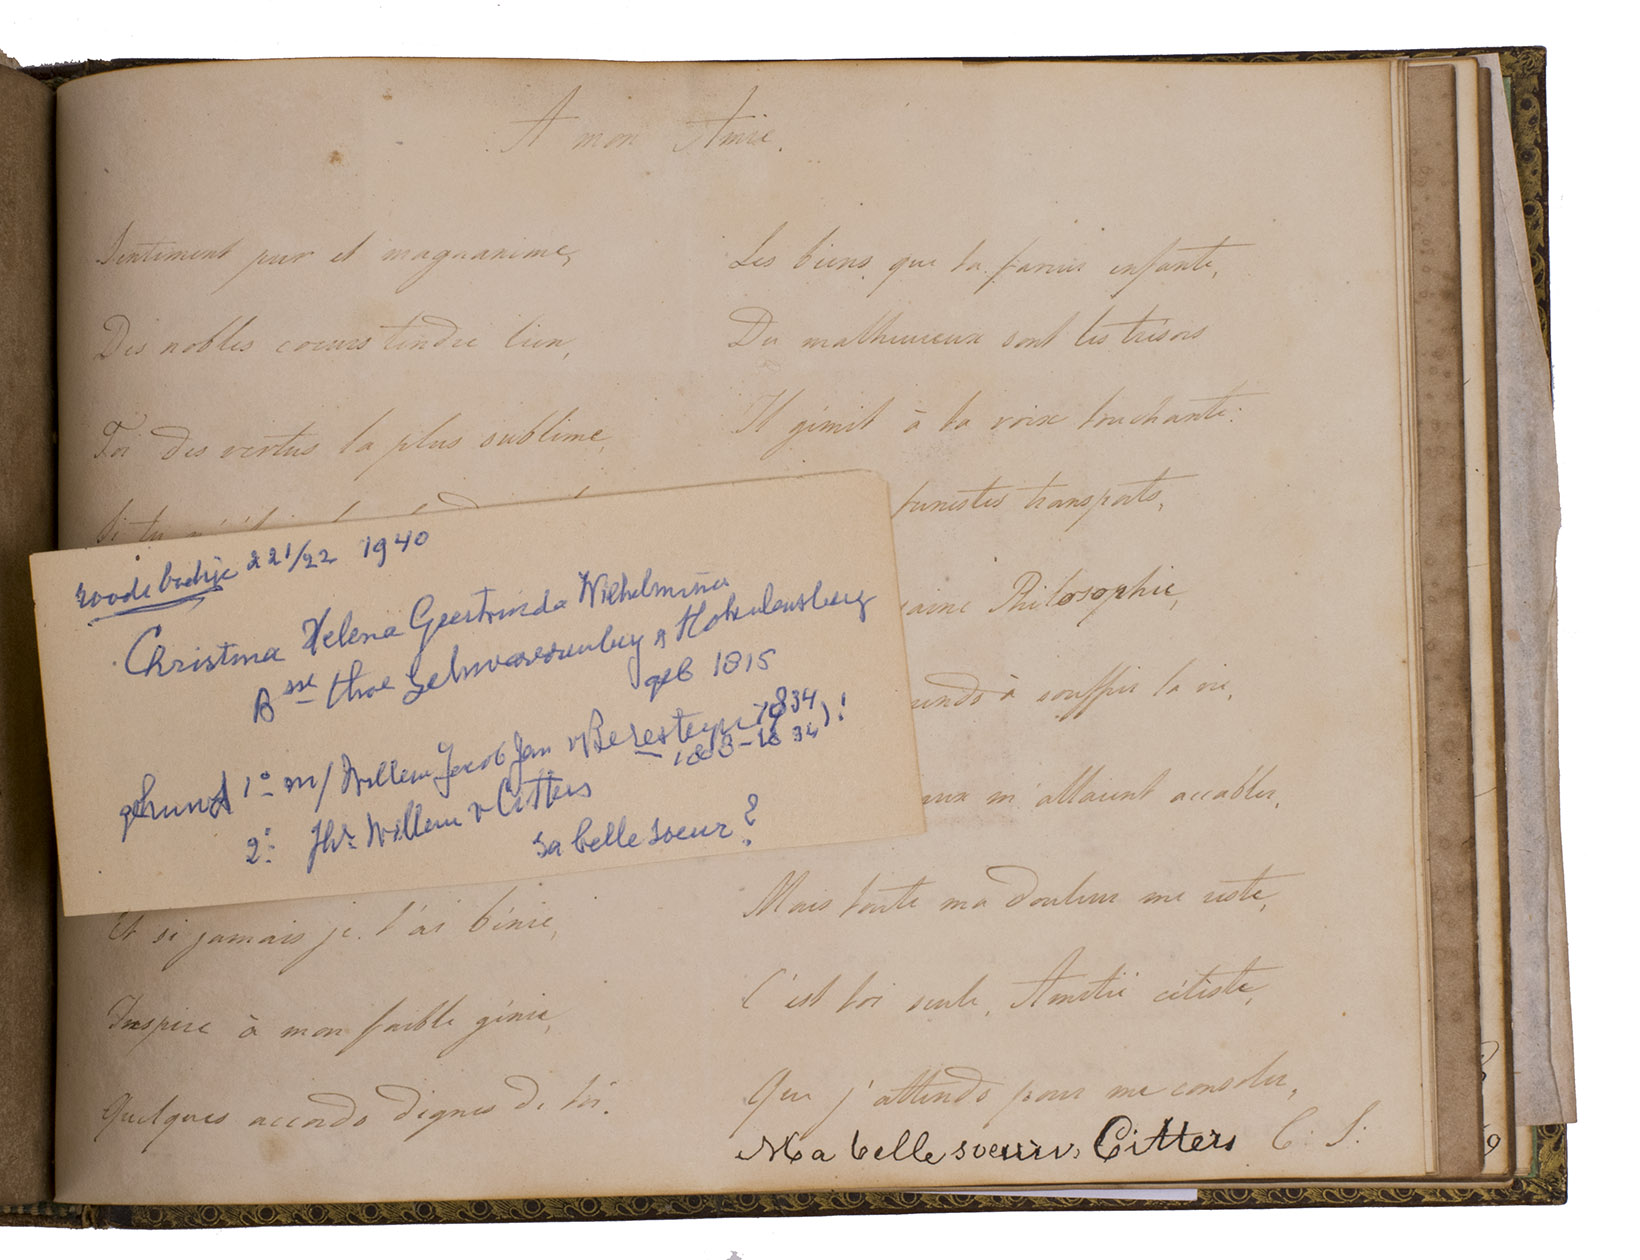 A mon Amie.
Sentiment pur et magnanime,
Des nobles coeurs tendre lien,
Toi des vertus la plus sublime,
Si tu
Et si jamais je t'ai bénie,
Inspire à mon faible génie,
Quelques accords dignes de toi.
Les biens que ta faveur enfante,
Du malheureux sont les trésors
Il gémit à ta voix touchante:
funestes transports,
Philosophie,
à souffrir la vie,
m'allaient accabler,
Mais toute ma douleur me reste,
C'est toi seule, Amitié céleste,
Que j'attends pour me consoler,
C: S:
Ma belle soeur v. Citters
roode boekje 221/22 1940
Christina Helena Geertruida Wilhelmina
Bsse thoe Schwarzenberg & Hohenlansberg
geb 1815
gehuwd 1o m/ Willem Jacob Jan v Beresteyn 1834
1803-1834)!
2o: Jhr. Willem v Citters
sa belle soeur?